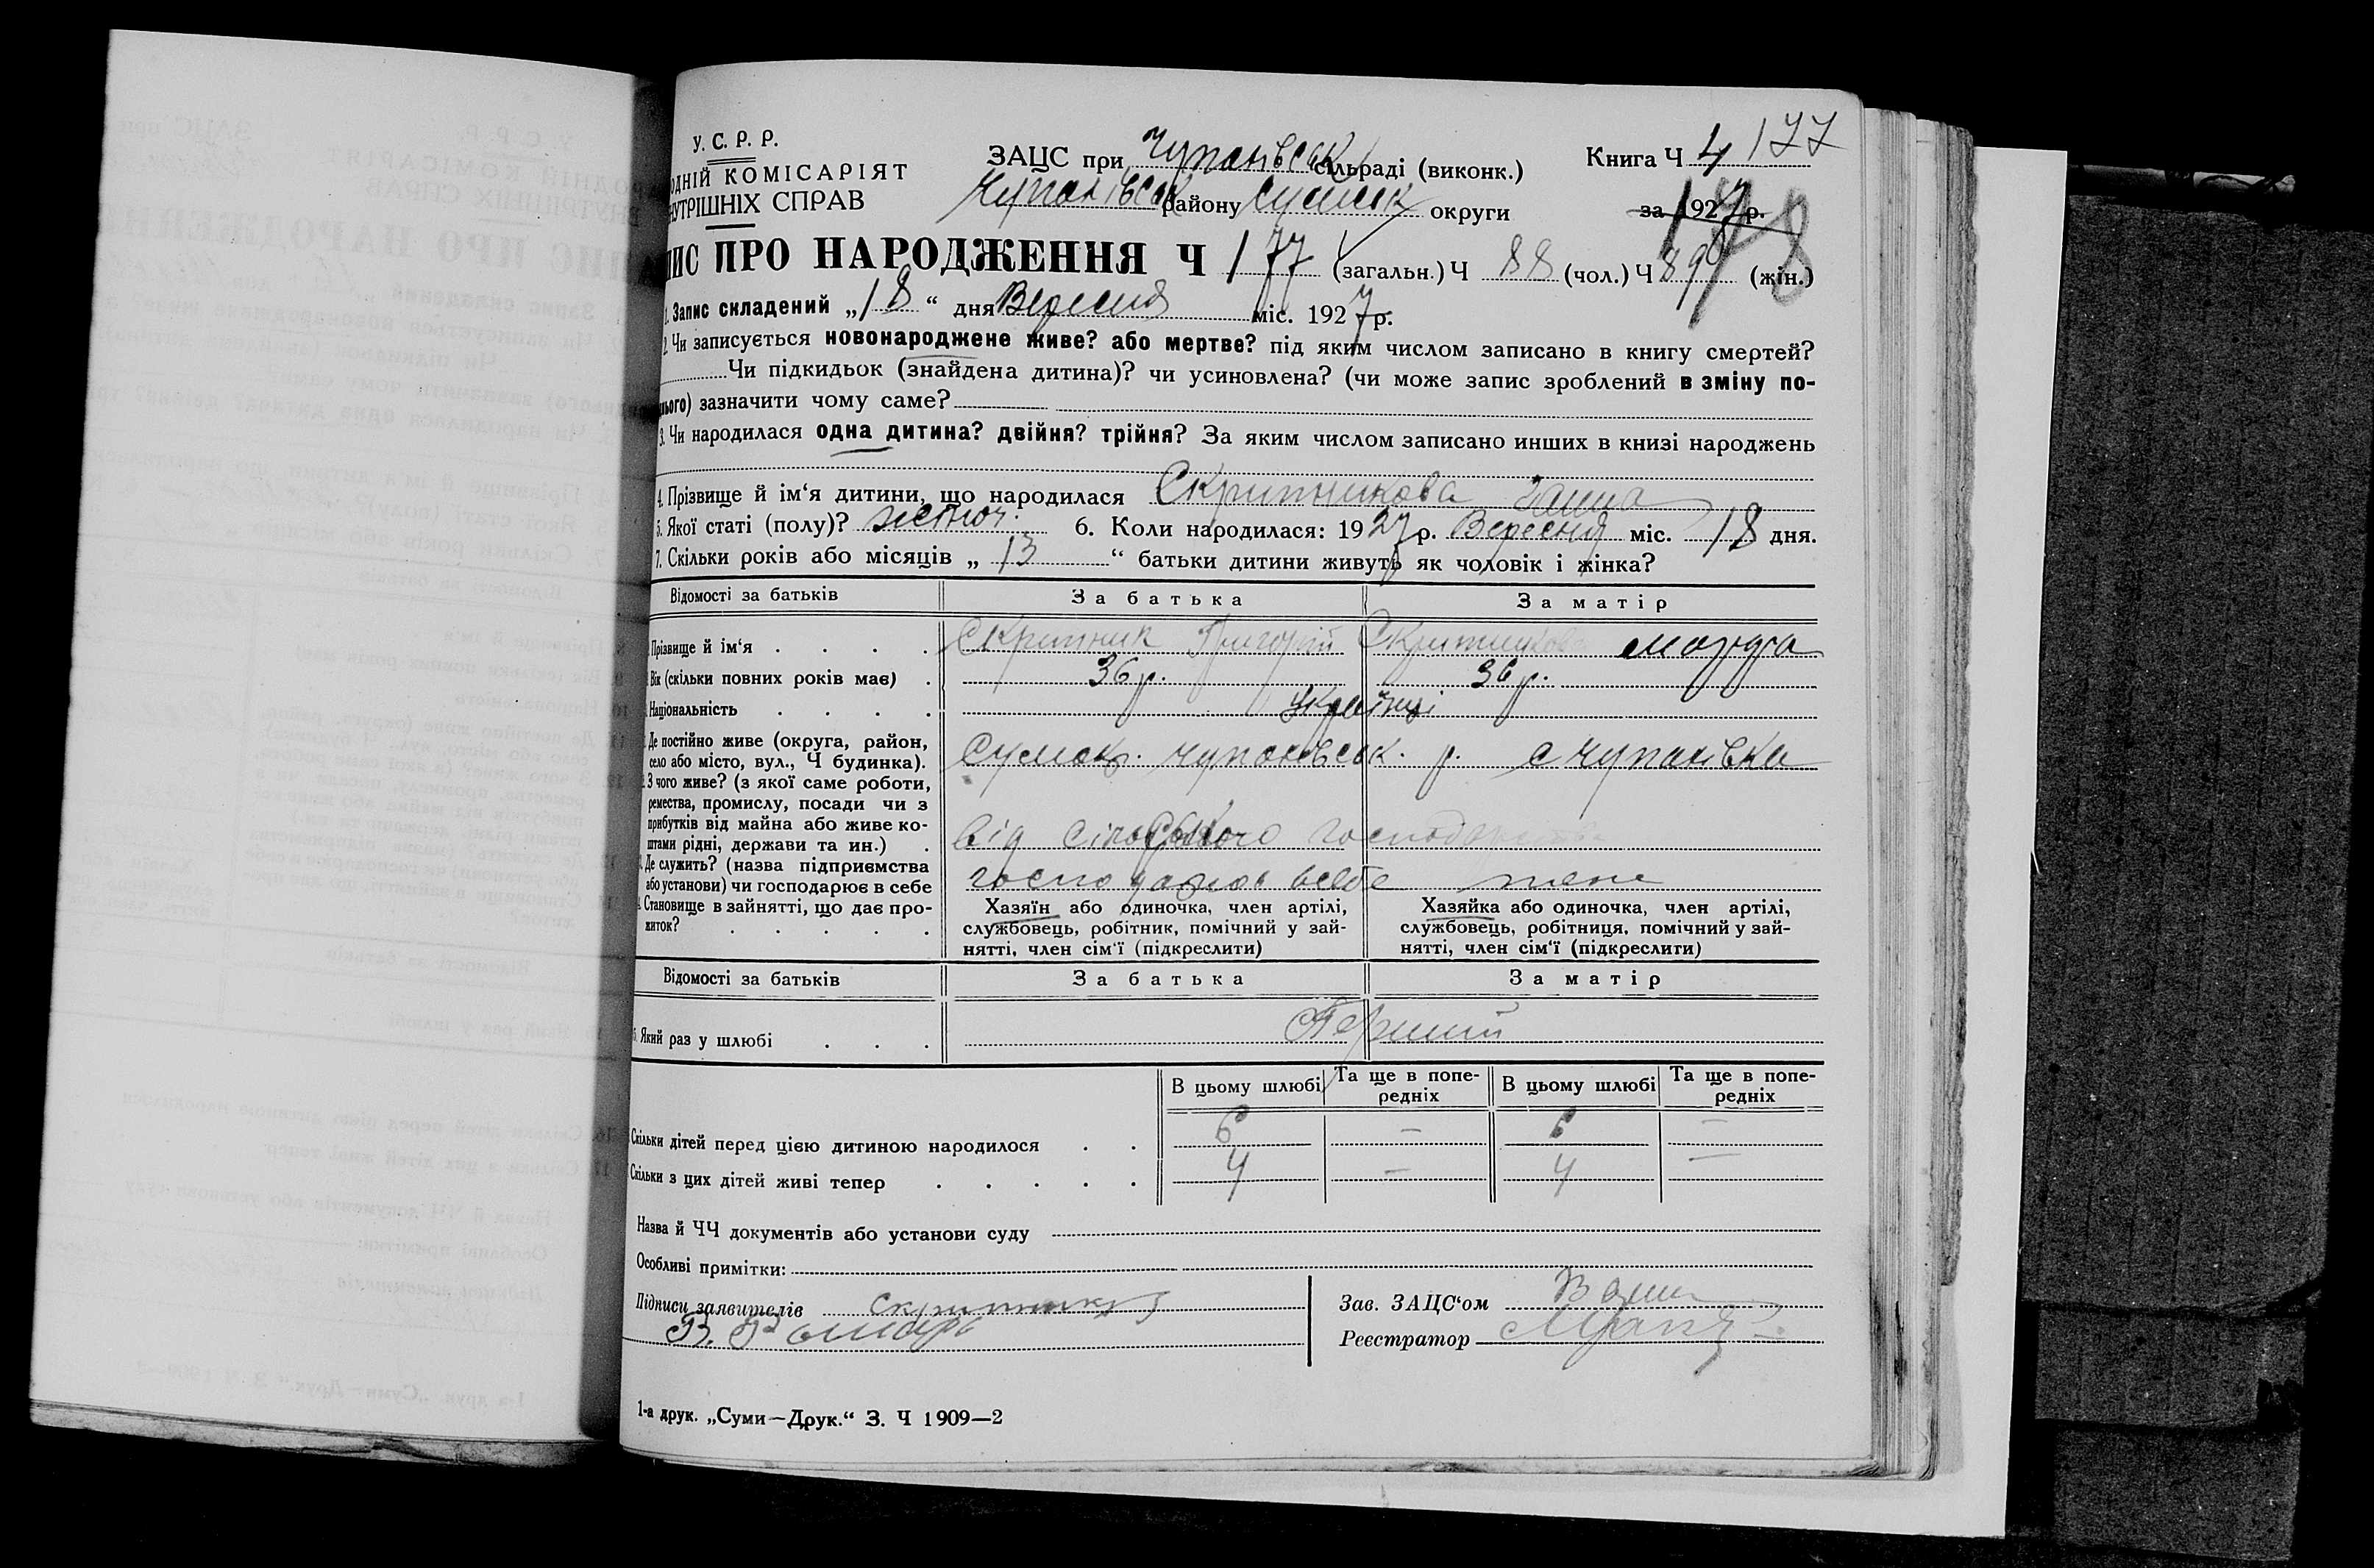 У. С. Р. Р.
ОДНІЙ КОМІСАРІЯТ
НУТРІШНІХ СПРАВ
ЗАЦС при Чупахівськ сільраді (виконк.)
Чупахівськ району Сумськ округи
Книга Ч 4 177
за 1927 р.
178
ПИС ПРО НАРОДЖЕННЯ Ч 177 (загальн.) Ч 88 (чол.) Ч 89 (жін.)
1. Запис складений „18“ дня Вересня міс. 1927 р.
2. Чи записується новонароджене живе? або мертве? під яким числом записано в книгу смертей?
Чи підкидьок (знайдена дитина)? чи усиновлена? (чи може запис зроблений в зміну по-
нього) зазначити чому саме?
3. Чи народилася одна дитина? двійня? трійня? За яким числом записано инших в книзі народжень
4. Прізвище й ім‘я дитини, що народилася Скрипникова Ганна
5. Якої статі (полу)? жіноч. 6. Коли народилася: 1927 р. Вересня міс. 18 дня.
7. Скільки років або місяців „ 13 “ батьки дитини живуть як чоловік і жінка?
Відомості за батьків За батька За матір
Прізвище й ім‘я . . . . Скрипник Григорій Скрипникова
Вік (скільки повних років має) . 36 р. 36 р.
Національність . . . . Українці
Де постійно живе (округа, район,
село або місто, вул., Ч будинка). Сумськ. Чупахівськ. р. с Чупахівка
З чого живе? (з якої саме роботи,
ремества, промислу, посади чи з
прибутків від майна або живе ко-
штами рідні, держави та ин.) . від сільського господарства
Де служить? (назва підприємства
або установи) чи господарює в себе
Становище в зайнятті, що дає про-
житок? . . . . .
Хазяїн або одиночка, член артілі,
службовець, робітник, помічний у зай-
нятті, член сім‘ї (підкреслити)
Хазяйка або одиночка, член артілі,
службовець, робітниця, помічний у зай-
нятті, член сім‘ї (підкреслити)
Відомості за батьків За батька За матір
Який раз у шлюбі . . . Перший
В цьому шлюбі Та ще в попе-
редніх В цьому шлюбі Та ще в попе-
редніх
Скільки дітей перед цією дитиною народилося . . 6 — 6 —
Скільки з цих дітей живі тепер . . . . . 4 — 4 —
Назва й ЧЧ документів або установи суду
Особливі примітки:
Підписи заявителів Скрипник
Зав. ЗАЦС‘ом
Реєстратор
1-а друк. „Суми—Друк.“ З. Ч 1909—2